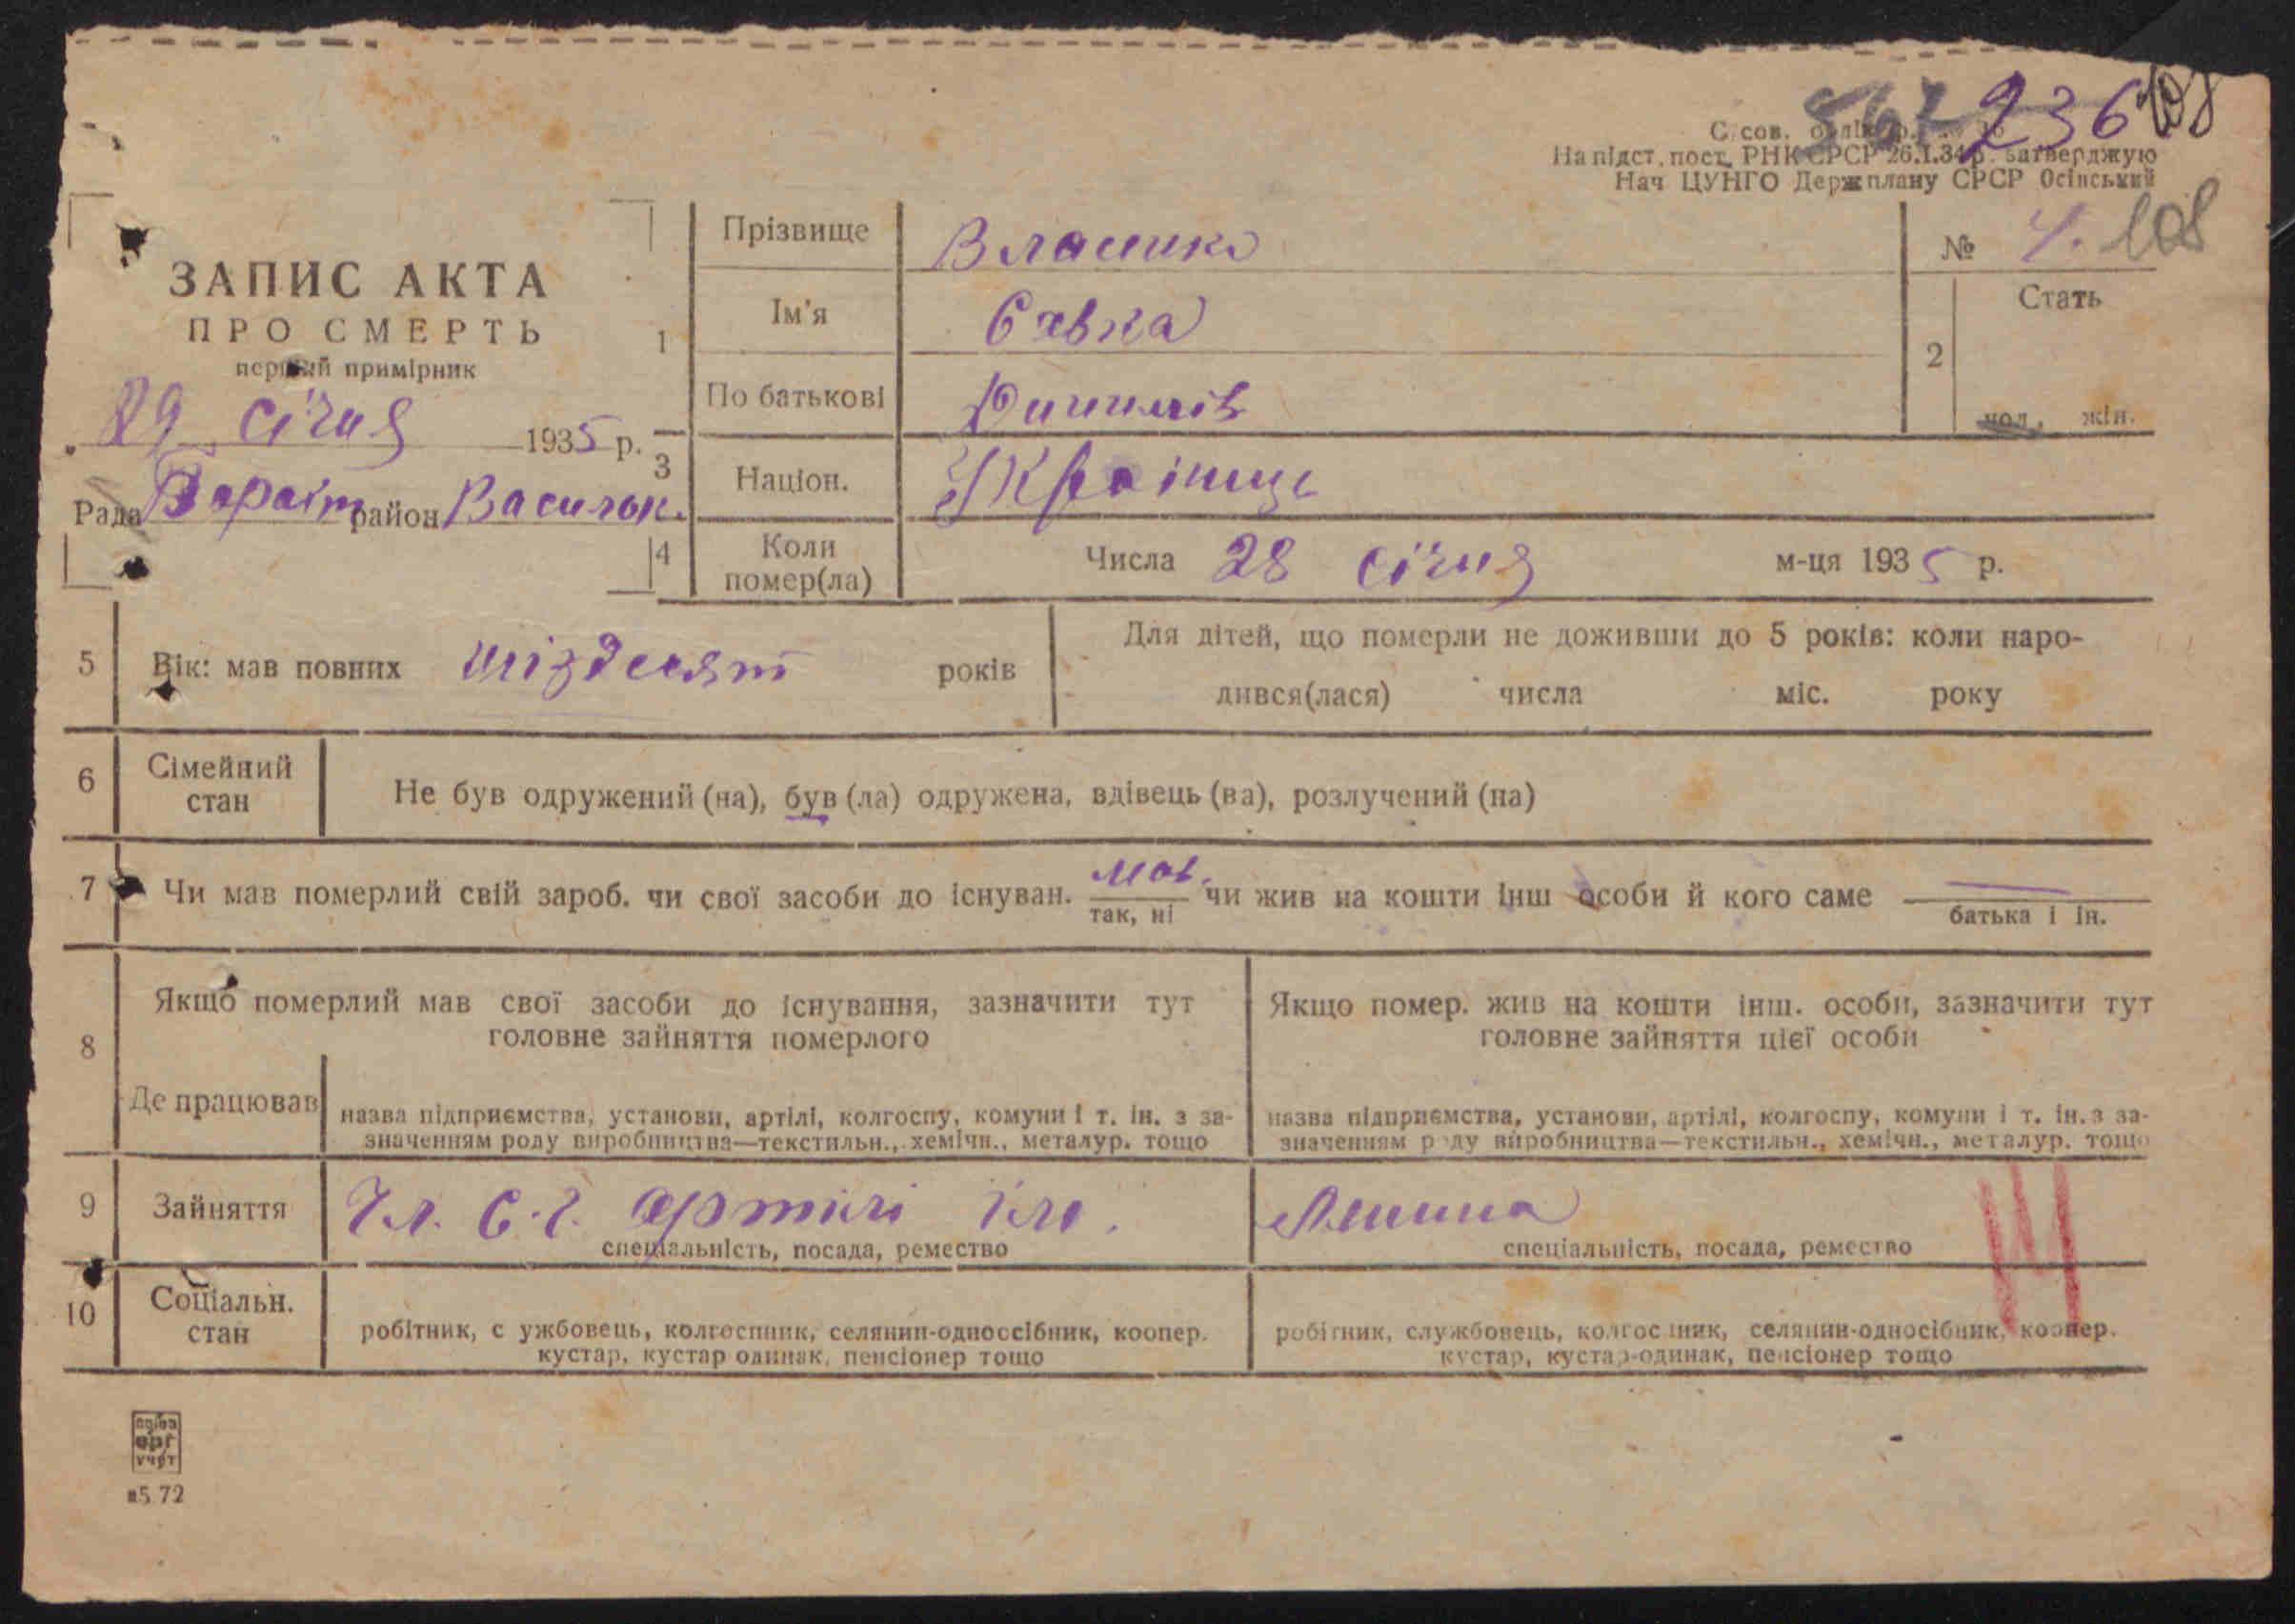 236
С. сов.
На підст. пост. РНК СРСР 26.I.34 р. затверджую
Нач ЦУНГО Держплану СРСР Осінський
ЗАПИС АКТА
ПРО СМЕРТЬ
перший примірник
29 січня 1935 р.
Рада район Васильк.
1 Прізвище Власенко
Ім'я Савка
По батькові
№ 4. 108
2 Стать
чол. жін.
3 Націон. Українець
4 Коли помер(ла) Числа 28 січня м-ця 1935 р.
5 Вік: мав повних шіздесят років
Для дітей, що померли не доживши до 5 років: коли наро-
дився(лася) числа міс. року
6 Сімейний стан Не був одружений (на), був (ла) одружена, вдівець (ва), розлучений (на)
7 Чи мав померлий свій зароб. чи свої засоби до існуван. мав. чи жив на кошти інш особи й кого саме
так, ні батька і ін.
8 Якщо померлий мав свої засоби до існування, зазначити тут
головне зайняття померлого
Якщо помер. жив на кошти інш. особи, зазначити тут
головне зайняття цієї особи
Де працював
назва підприємства, установи, артілі, колгоспу, комуни і т. ін. з за-
значенням роду виробництва—текстильн., хемічн., металур. тощо
назва підприємства, установи, артілі, колгоспу, комуни і т. ін. з за-
значенням роду виробництва—текстильн., хемічн., металур. тощо
9 Зайняття Чл. С.-г. артілі ім. Леніна
спеціальність, посада, ремество
спеціальність, посада, ремество
10 Соціальн. стан
робітник, с ужбовець, колгоспник, селянин-одноосібник, коопер.
кустар, кустар одинак, пенсіонер тощо
робітник, службовець, колгоспник, селянин-односібник, коопер.
кустар, кустар-одинак, пенсіонер тощо
орг
учёт
5 72